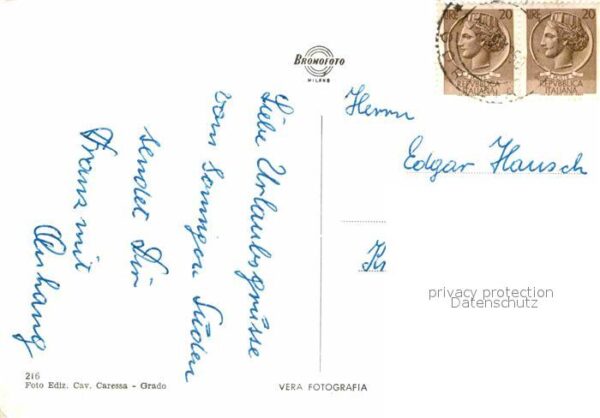 BROMOFOTO
MILANO
LIRE 20
LIRE 20
REPVBBLICA
ITALIANA
REPVBBLICA
ITALIANA
Liebe Urlaubsgrüsse
vom sonnigen Süden
sendet Dir
Franz mit
Anhang
Herrn
Edgar Hausch
privacy protection
Datenschutz
216
Foto Ediz. Cav. Caressa - Grado
VERA FOTOGRAFIA